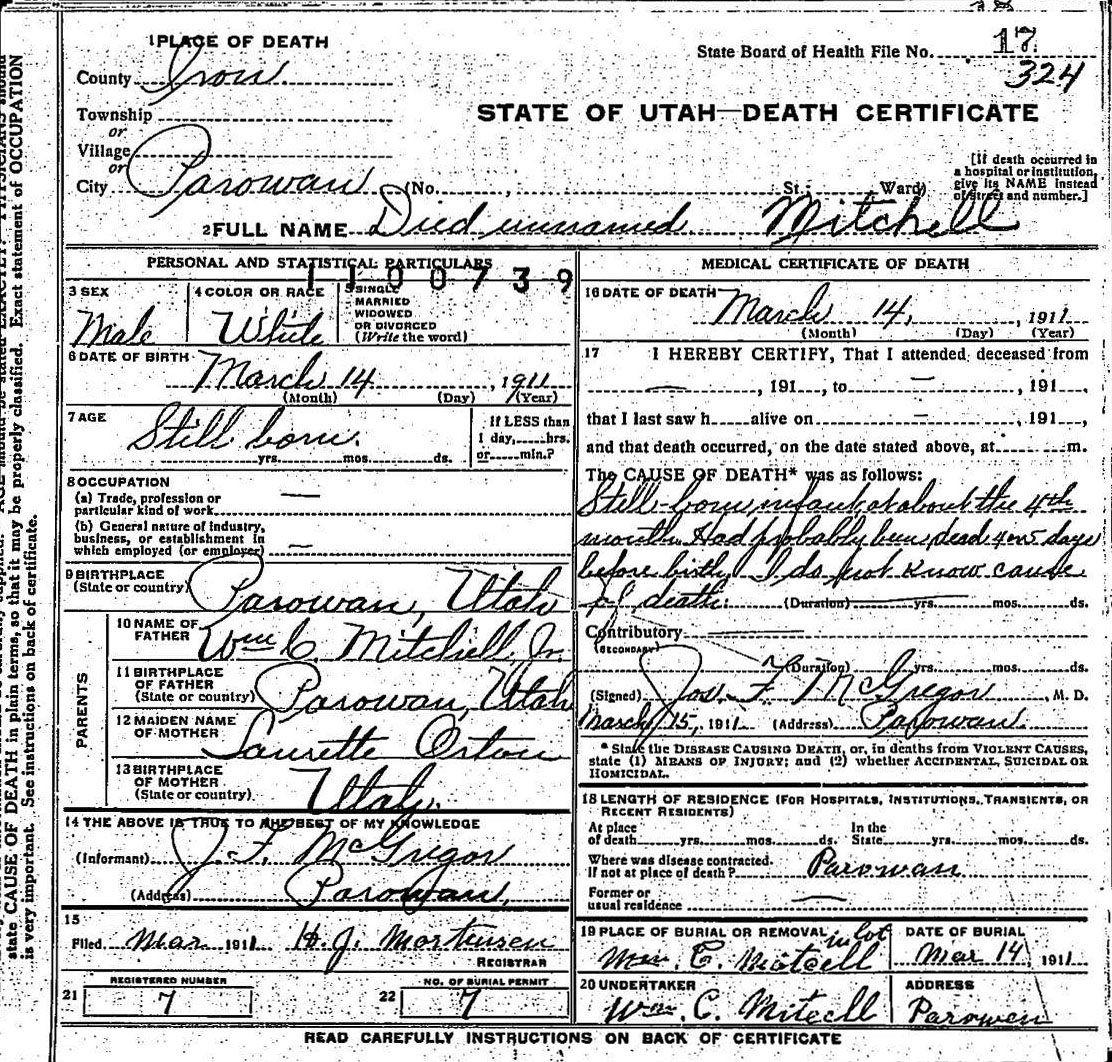 1 PLACE OF DEATH
State Board of Health File No. 17
324
County Iron
STATE OF UTAH—DEATH CERTIFICATE
Township
or
Village
or
City Parowan (No. , St.; Ward)
[If death occurred in
a hospital or institution,
give its NAME instead
of street and number.]
2 FULL NAME Died unnamed Mitchell
PERSONAL AND STATISTICAL PARTICULARS
1100739
3 SEX
Male
4 COLOR OR RACE
White
5 SINGLE
MARRIED
WIDOWED
OR DIVORCED
(Write the word)
6 DATE OF BIRTH
March 14, 1911
(Month) (Day) (Year)
7 AGE
Still born.
yrs. mos. ds.
If LESS than
1 day, hrs.
or min.?
8 OCCUPATION
(a) Trade, profession or
particular kind of work —
(b) General nature of industry,
business, or establishment in
which employed (or employer) —
9 BIRTHPLACE
(State or country)
Parowan, Utah
PARENTS
10 NAME OF
FATHER
Wm C. Mitchell, Jr.
11 BIRTHPLACE
OF FATHER
(State or country)
Parowan, Utah
12 MAIDEN NAME
OF MOTHER
Laurette Orton
13 BIRTHPLACE
OF MOTHER
(State or country)
Utah.
14 THE ABOVE IS TRUE TO THE BEST OF MY KNOWLEDGE
(Informant) J. F. McGregor
(Address) Parowan,
15
Filed Mar 1911 H. J. Mortensen
REGISTRAR
21
REGISTERED NUMBER
7
22
NO. OF BURIAL PERMIT
7
MEDICAL CERTIFICATE OF DEATH
16 DATE OF DEATH
March 14, , 1911
(Month) (Day) (Year)
17 I HEREBY CERTIFY, That I attended deceased from
— , 191 , to — , 191 ,
that I last saw h alive on — , 191 ,
and that death occurred, on the date stated above, at m.
The CAUSE OF DEATH* was as follows:
Still-born infant at about the 4th
month. Had probably been dead 4 or 5 days
before birth. I do not know cause
of death. (Duration) yrs. mos. ds.
Contributory
(SECONDARY)
(Duration) yrs. mos. ds.
(Signed) Jos. F. McGregor M. D.
March 15, 1911 (Address) Parowan.
* State the DISEASE CAUSING DEATH, or, in deaths from VIOLENT CAUSES,
state (1) MEANS OF INJURY; and (2) whether ACCIDENTAL, SUICIDAL OR
HOMICIDAL.
18 LENGTH OF RESIDENCE (FOR HOSPITALS, INSTITUTIONS, TRANSIENTS, OR
RECENT RESIDENTS)
At place
of death yrs. mos. ds.
In the
State yrs. mos. ds.
Where was disease contracted.
If not at place of death? Parowan
Former or
usual residence —
19 PLACE OF BURIAL OR REMOVAL
in lot
Wm. C. Mitcell
DATE OF BURIAL
Mar 14, 1911
20 UNDERTAKER
Wm. C. Mitcell
ADDRESS
Parowan
READ CAREFULLY INSTRUCTIONS ON BACK OF CERTIFICATE
state CAUSE OF DEATH in plain terms, so that it may be properly classified. Exact statement of OCCUPATION
is very important. See instructions on back of certificate.